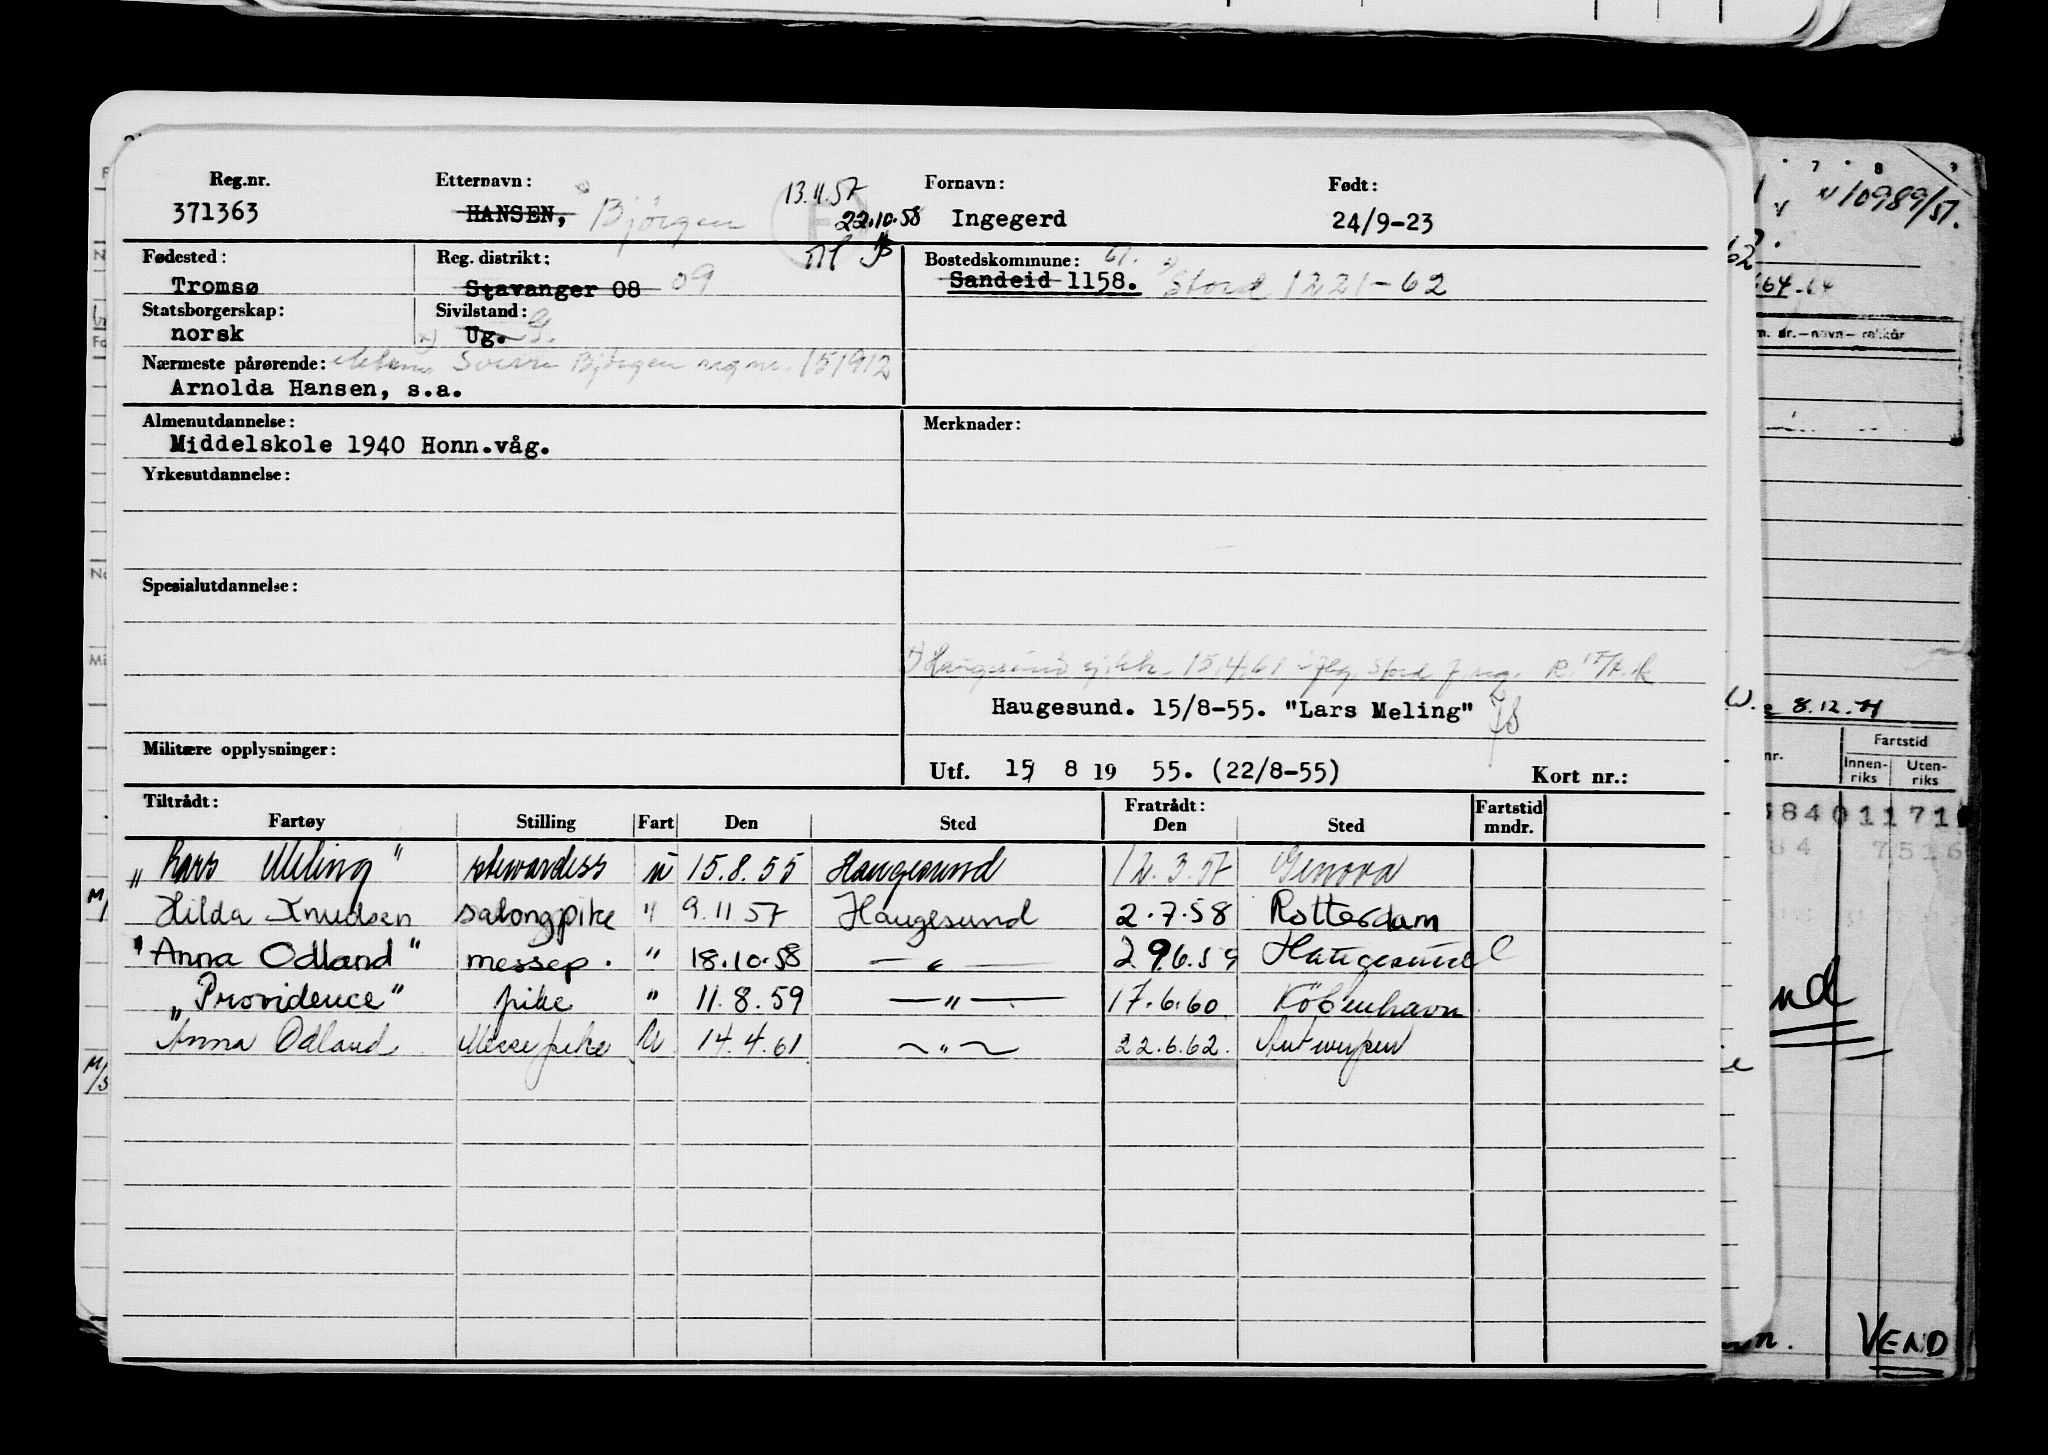 Reg.nr. Etternavn: 13.11.57 Fornavn: Født:
371363 HANSEN, Bjørgen 22.10.58 Ingegerd 24/9-23
Fødested: Reg. distrikt: Bostedskommune: 61.
Tromsø Stavanger 08 09 Sandeid 1158. Stord 1221-62
Statsborgerskap: Sivilstand: G.
norsk Ug.
Nærmeste pårørende: Bjørgen reg nr. 151912
Arnolda Hansen, s.a.
Almenutdannelse: Merknader:
Middelskole 1940 Honn.våg.
Yrkesutdannelse:
Spesialutdannelse:
Haugesund sjtkk. 15.4.61 Stord
Haugesund. 15/8-55. "Lars Meling"
Militære opplysninger:
Utf. 15 8 19 55. (22/8-55) Kort nr.:
Tiltrådt: Fratrådt: Fartstid
Fartøy Stilling Fart Den Sted Den Sted mndr.
„Lars Meling" stewardess u 15.8.55 Haugesund 12.3.57 Genova
Hilda Knudsen salongpike " 9.11 57 Haugesund 2.7.58 Rotterdam
"Anna Odland" messep. " 18.10.58 — " — 29.6.59 Haugesund
„Providence" pike " 11.8.59 — " — 17.6.60 København
Anna Odland Messepike U 14.4.61 ~ " ~ 22.6.62. Antwerpen
7 8 9
10989/57.
664.64
m. år.—navn—rekkår
8.12.71
nr. Fartstid
Innen- Uten-
riks riks
8401171
84 7516
nd
VEND